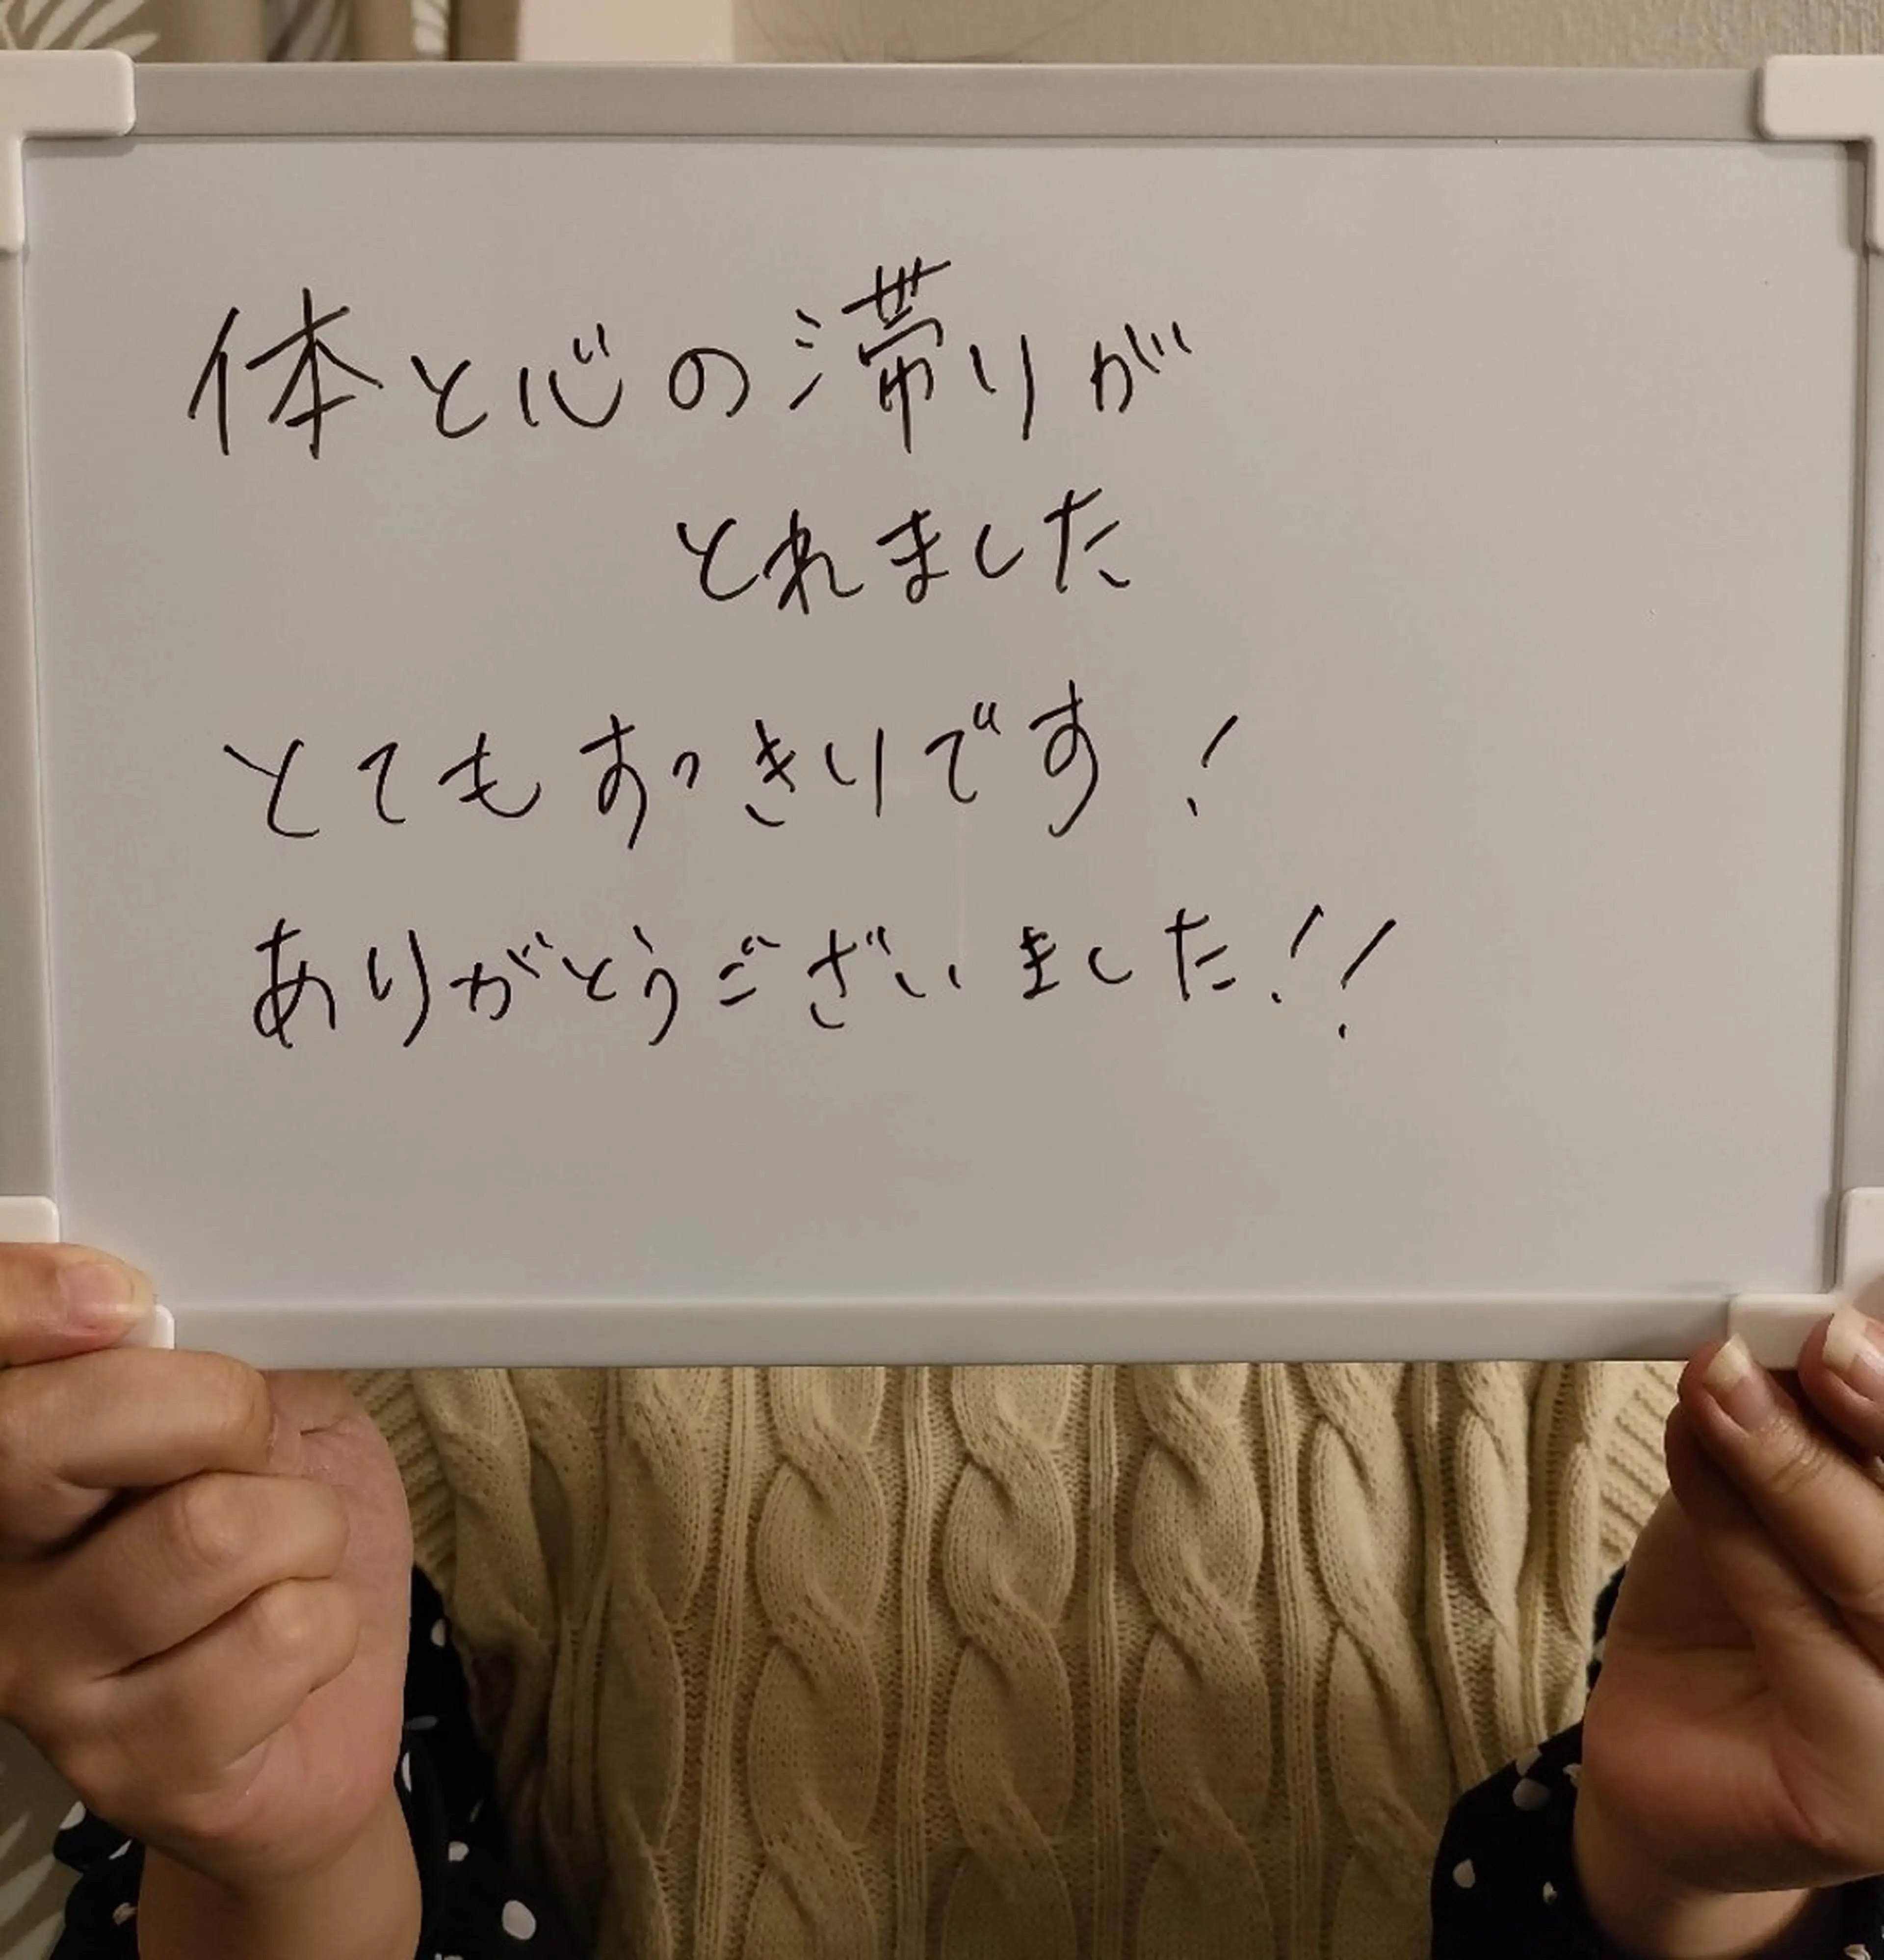 体と心の滞りが
とれました
とてもすっきりです!
ありがとうございました!!